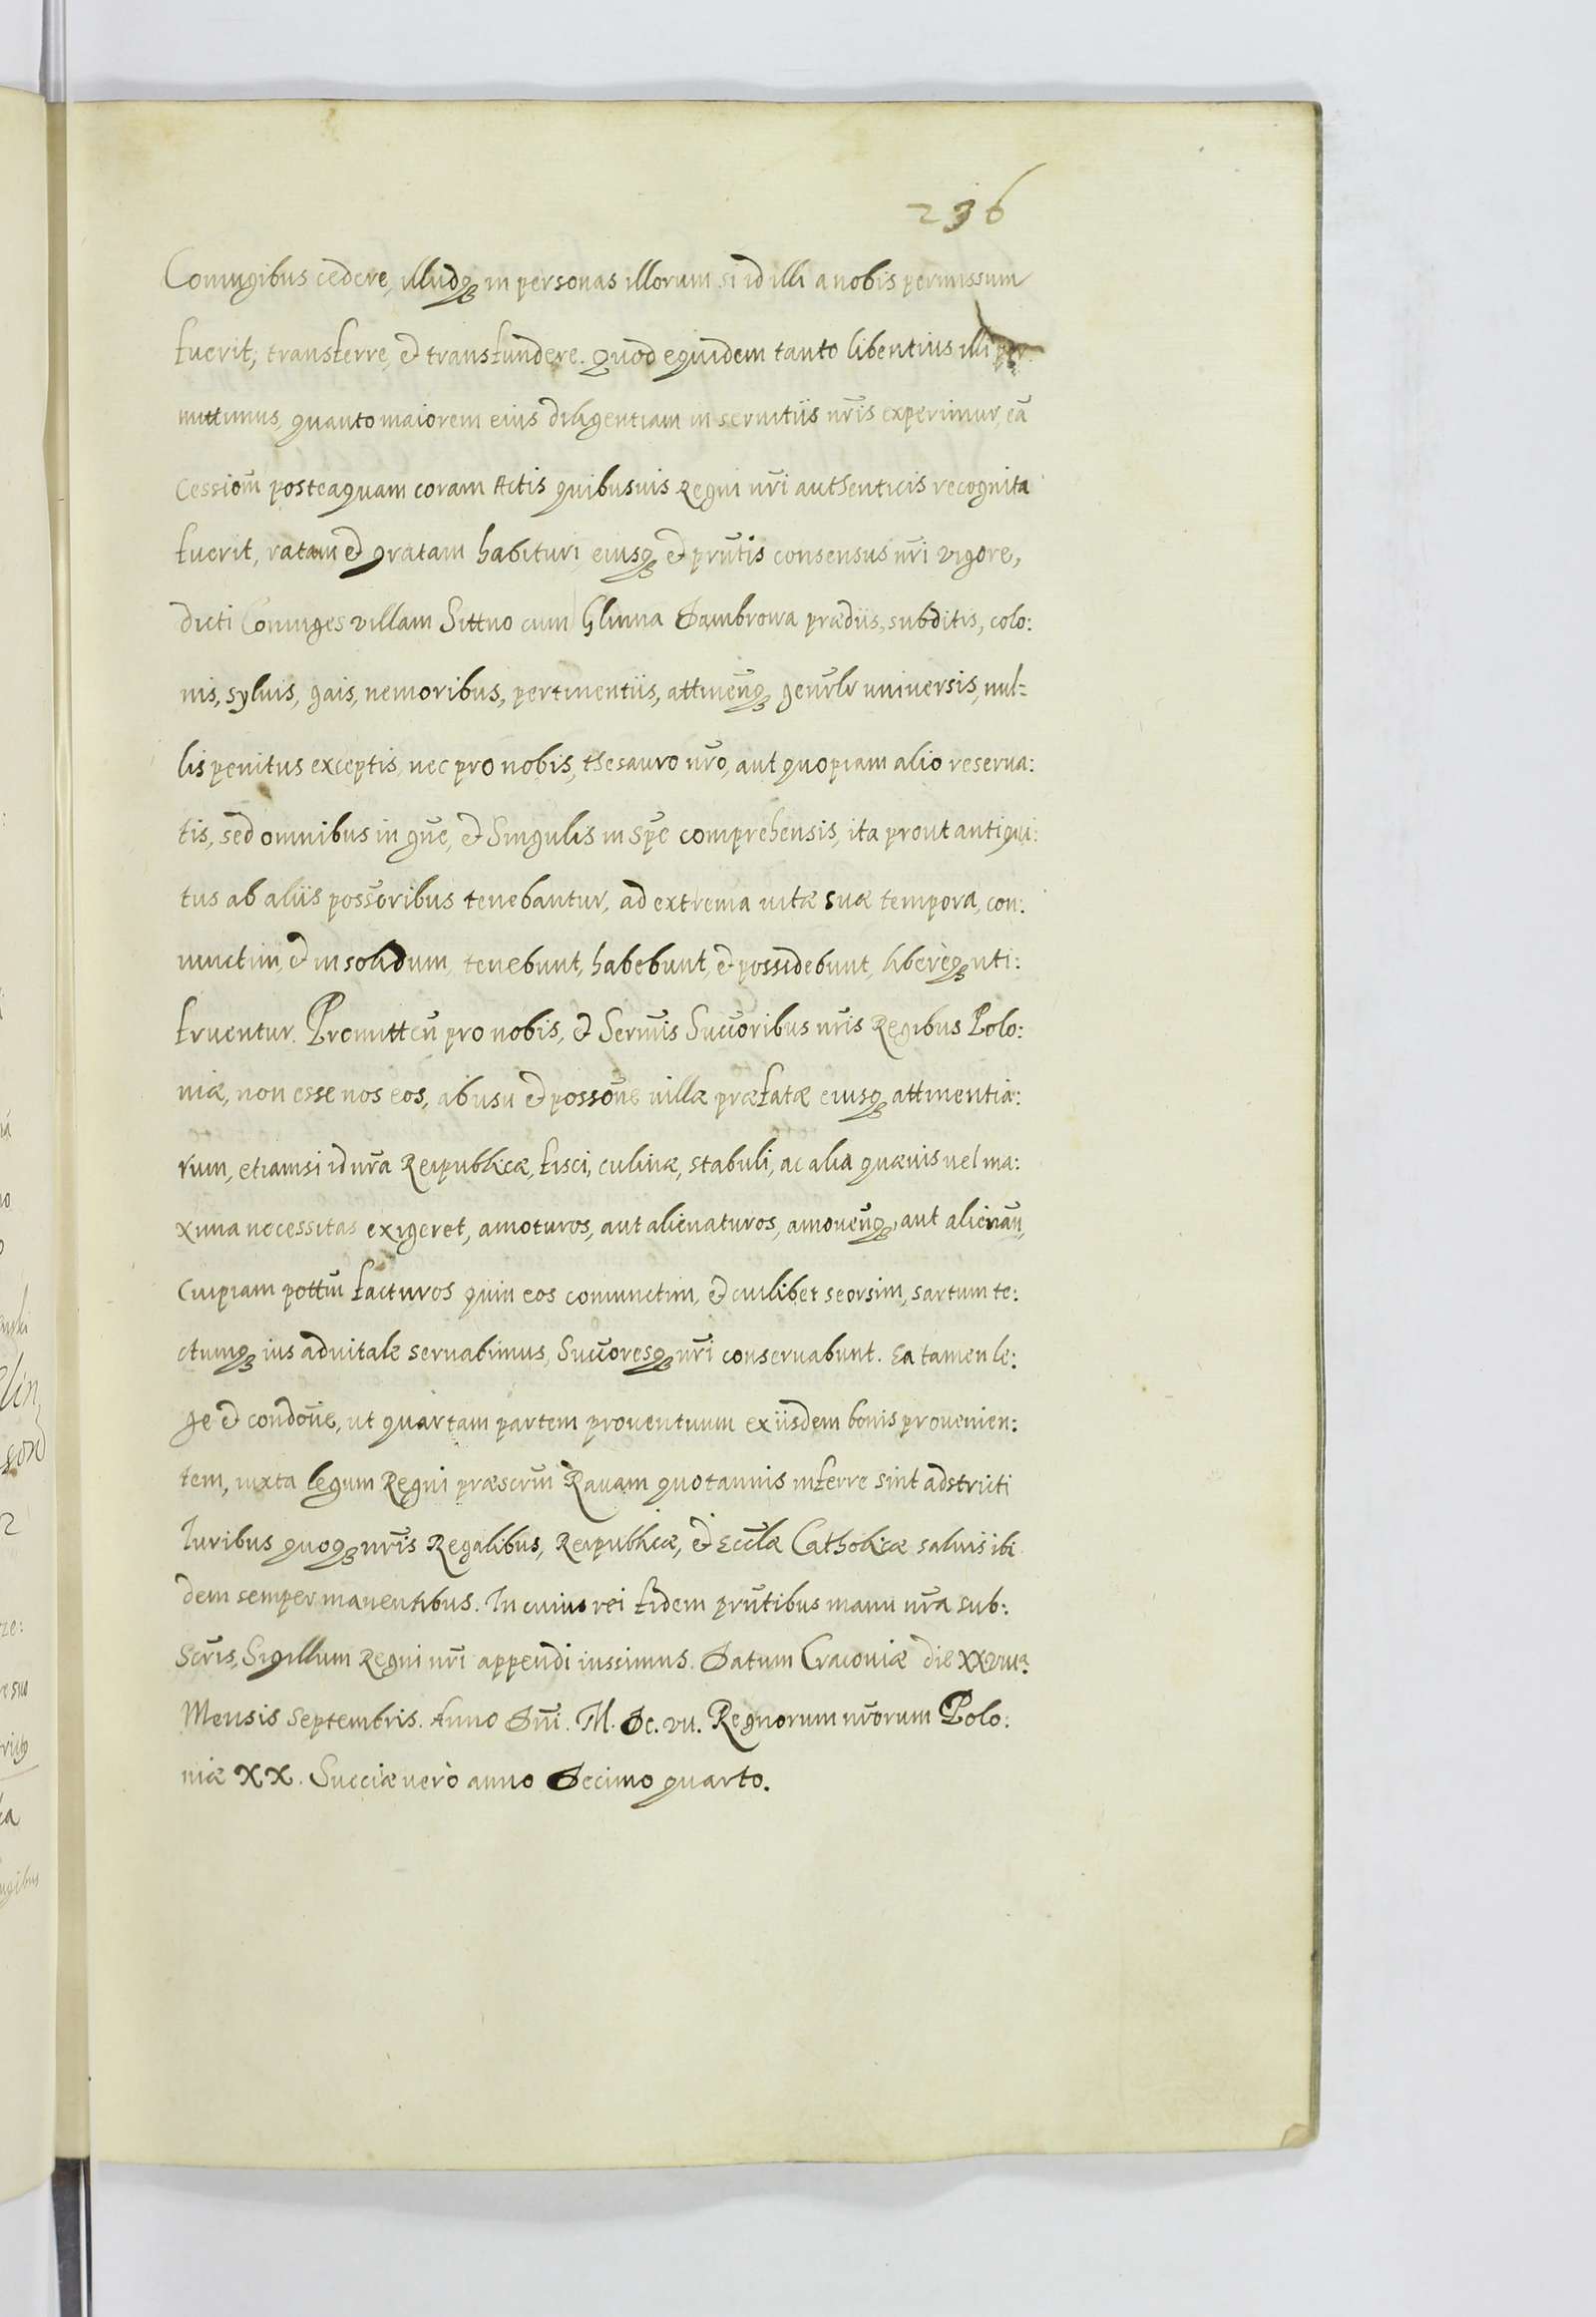 236
Coniugibus cedere, illudq3 in personas illorum si id illi a nobis permissum
fuerit, transferre, et transfundere. Quod equidem tanto libentius illi per
mittimus, quanto maiorem eius diligentiam in seruitiis nr̃is experimur, eã
Cessiom̃ posteaquam coram Actis quibusuis Regni nr̃i authenticis recognita
fuerit, ratam et gratam habituri, eiusq3 et prñtis consensus nr̃i vigore,
dicti Coniuges villam Sittno cum Glinna Dambrowa prædiis, subditis, colo:
nis, syluis, gais, nemoribus, pertinentiis, attineñq3 genr̃lr vniuersis, nul=
lis penitus exceptis, nec pro nobis, thesauro nr̃o, aut quopiam alio reserua:
tis, sed omnibus in gñe, et Singulis in spẽ comprehensis, ita prout antiqui:
tus ab aliis poss̃oribus tenebantur, ad extrema vitæ suæ tempora, con:
iunctim, et in solidum, tenebunt, habebunt, et possidebunt, liberèq3 uti:
fruentur. Promitteñ pro nobis, et Serñis Succ̃oribus nr̃is Regibus Polo:
niæ, non esse nos eos, ab usu et poss̃one villæ præfatæ eiusq3 attinentia:
rum, etiamsi id nr̃a Reipublicæ, fisci, culinæ, stabuli, ac alia quæuis uel ma:
xima necessitas exigeret, amoturos, aut alienaturos, amoueñq3, aut alienañ,
Cuipiam pottm̃ facturos quin eos coniunctim, et cuilibet seorsim, sartum te:
ctumq3 ius aduitale seruabimus, Succ̃oresq3 nr̃i conseruabunt. Ea tamen le:
ge et condõne, ut quartam partem prouentuum ex iisdem bonis prouenien:
tem, iuxta legum Regni præscrm̃ Rauam quotannis inferre sint adstricti
Iuribus quoq3 nr̃is Regalibus, Reipublicæ, et Eccl̃æ Catholicæ saluis ibi
dem semper manentibus. In cuius rei fidem prñtibus manu nr̃a sub:
scris̃, Sigillum Regni nr̃i appendi iussimus. Datum Cracouiæ die XXviiia
Mensis Septembris. Anno Dñi. M. Dc. vii. Regnorum nr̃orum Polo:
niæ XX. Sueciæ verò anno Decimo quarto.